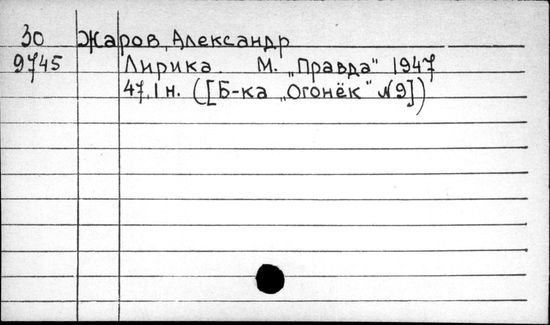 30 Жаров, Александр
9745 Лирика М. „Правда" 1947
47, 1 н. ([Б-ка „Огонёк" №9])